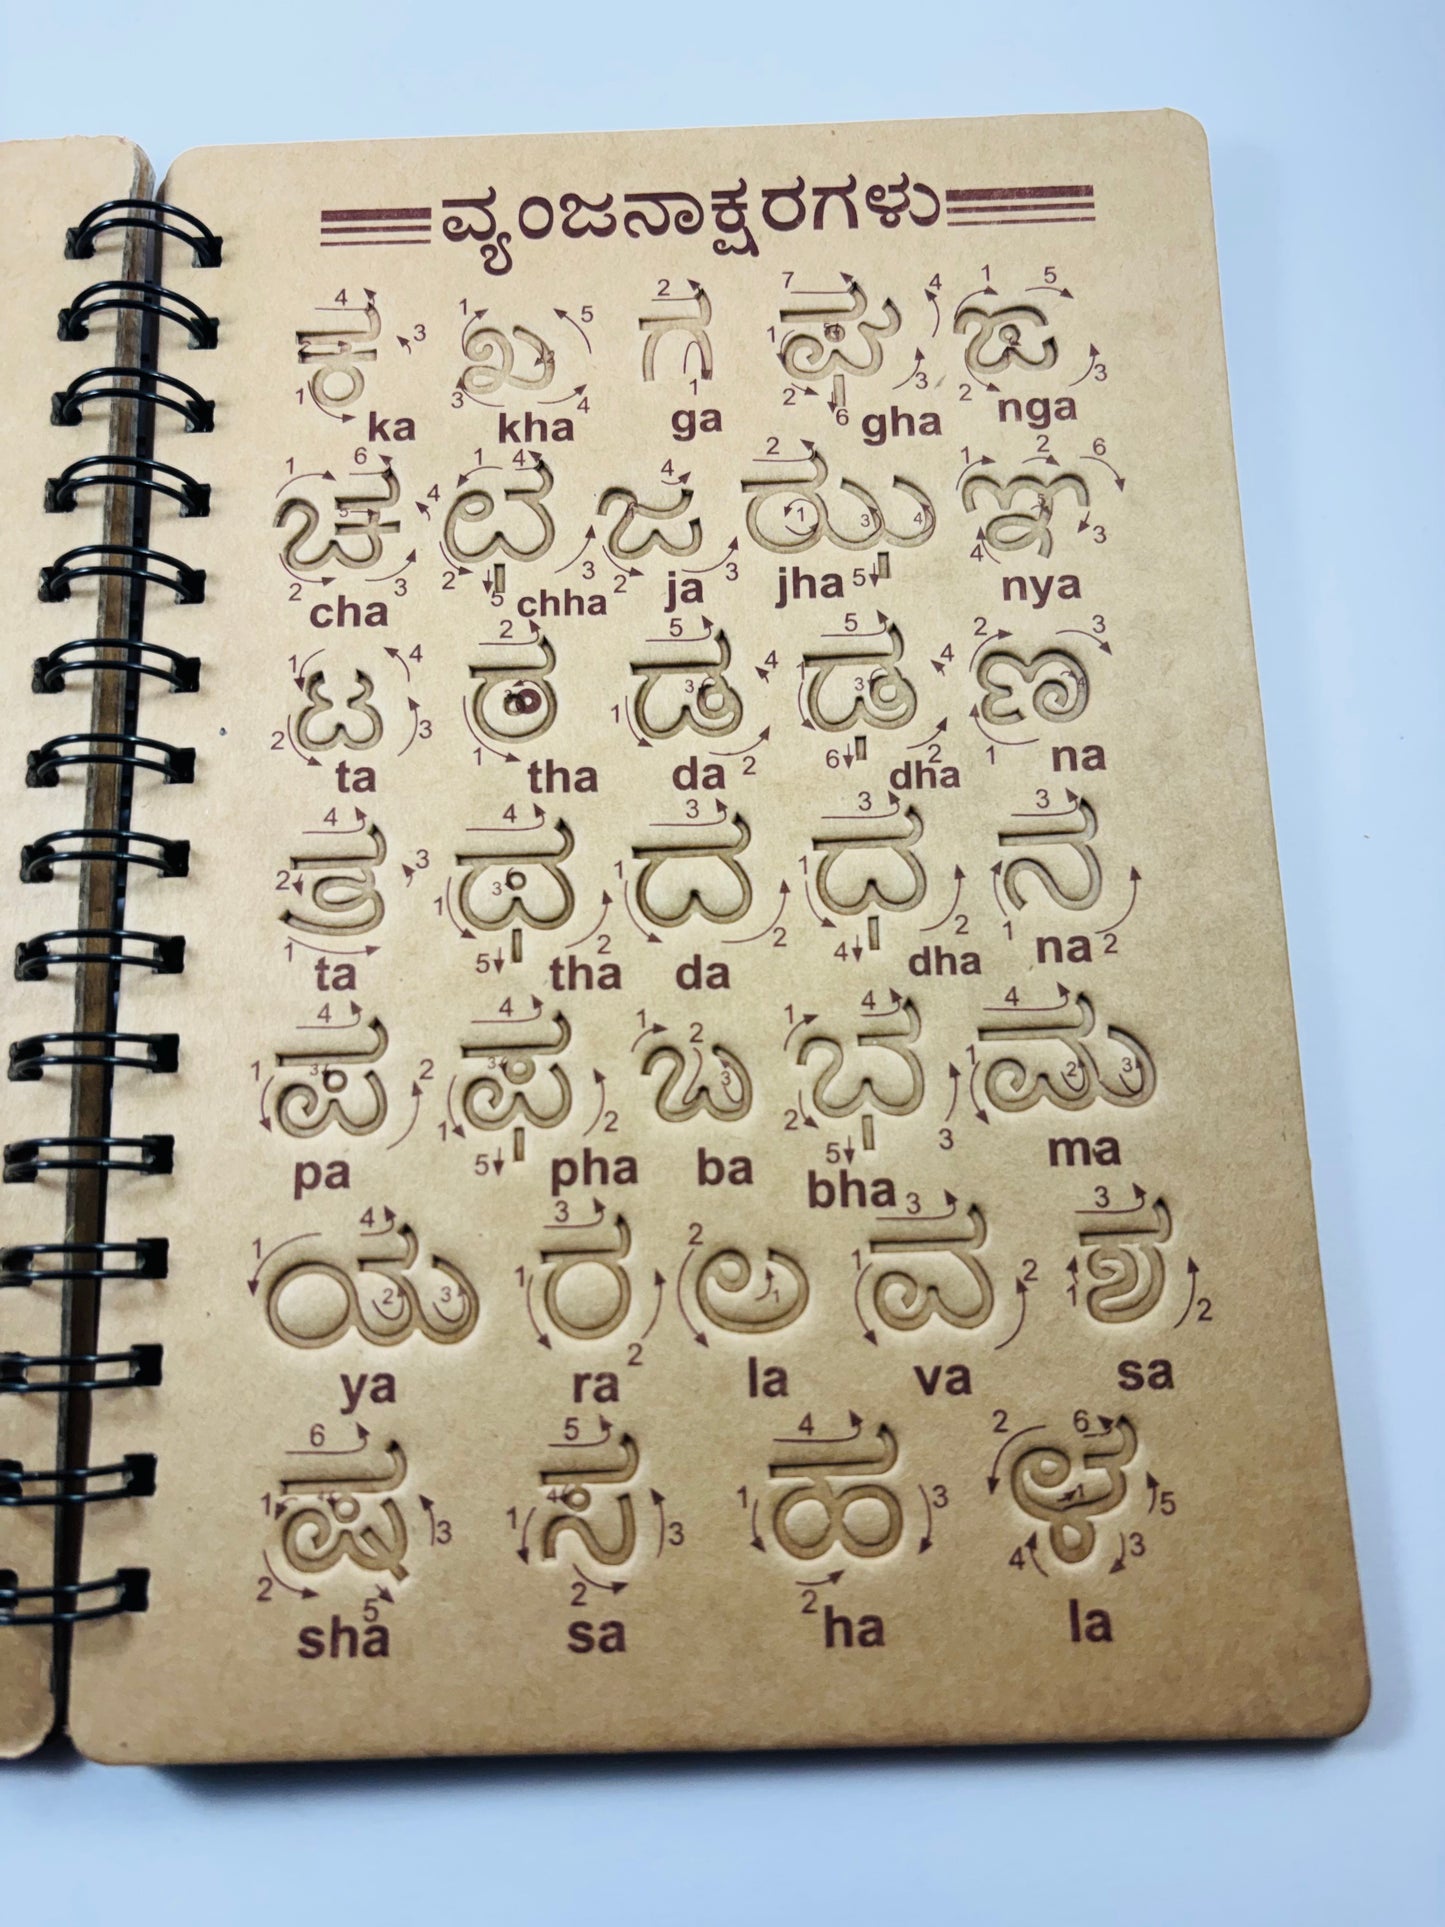 ವ್ಯಂಜನಾಕ್ಷರಗಳು
ಕ ಖ ಗ ಘ ಙ
ka kha ga gha nga
ಚ ಛ ಜ ಝ ಞ
cha chha ja jha nya
ಟ ಠ ಡ ಢ ಣ
ta tha da dha na
ತ ಥ ದ ಧ ನ
ta tha da dha na
ಪ ಫ ಬ ಭ ಮ
pa pha ba bha ma
ಯ ರ ಲ ವ ಶ
ya ra la va sa
ಷ ಸ ಹ ಳ
sha sa ha la